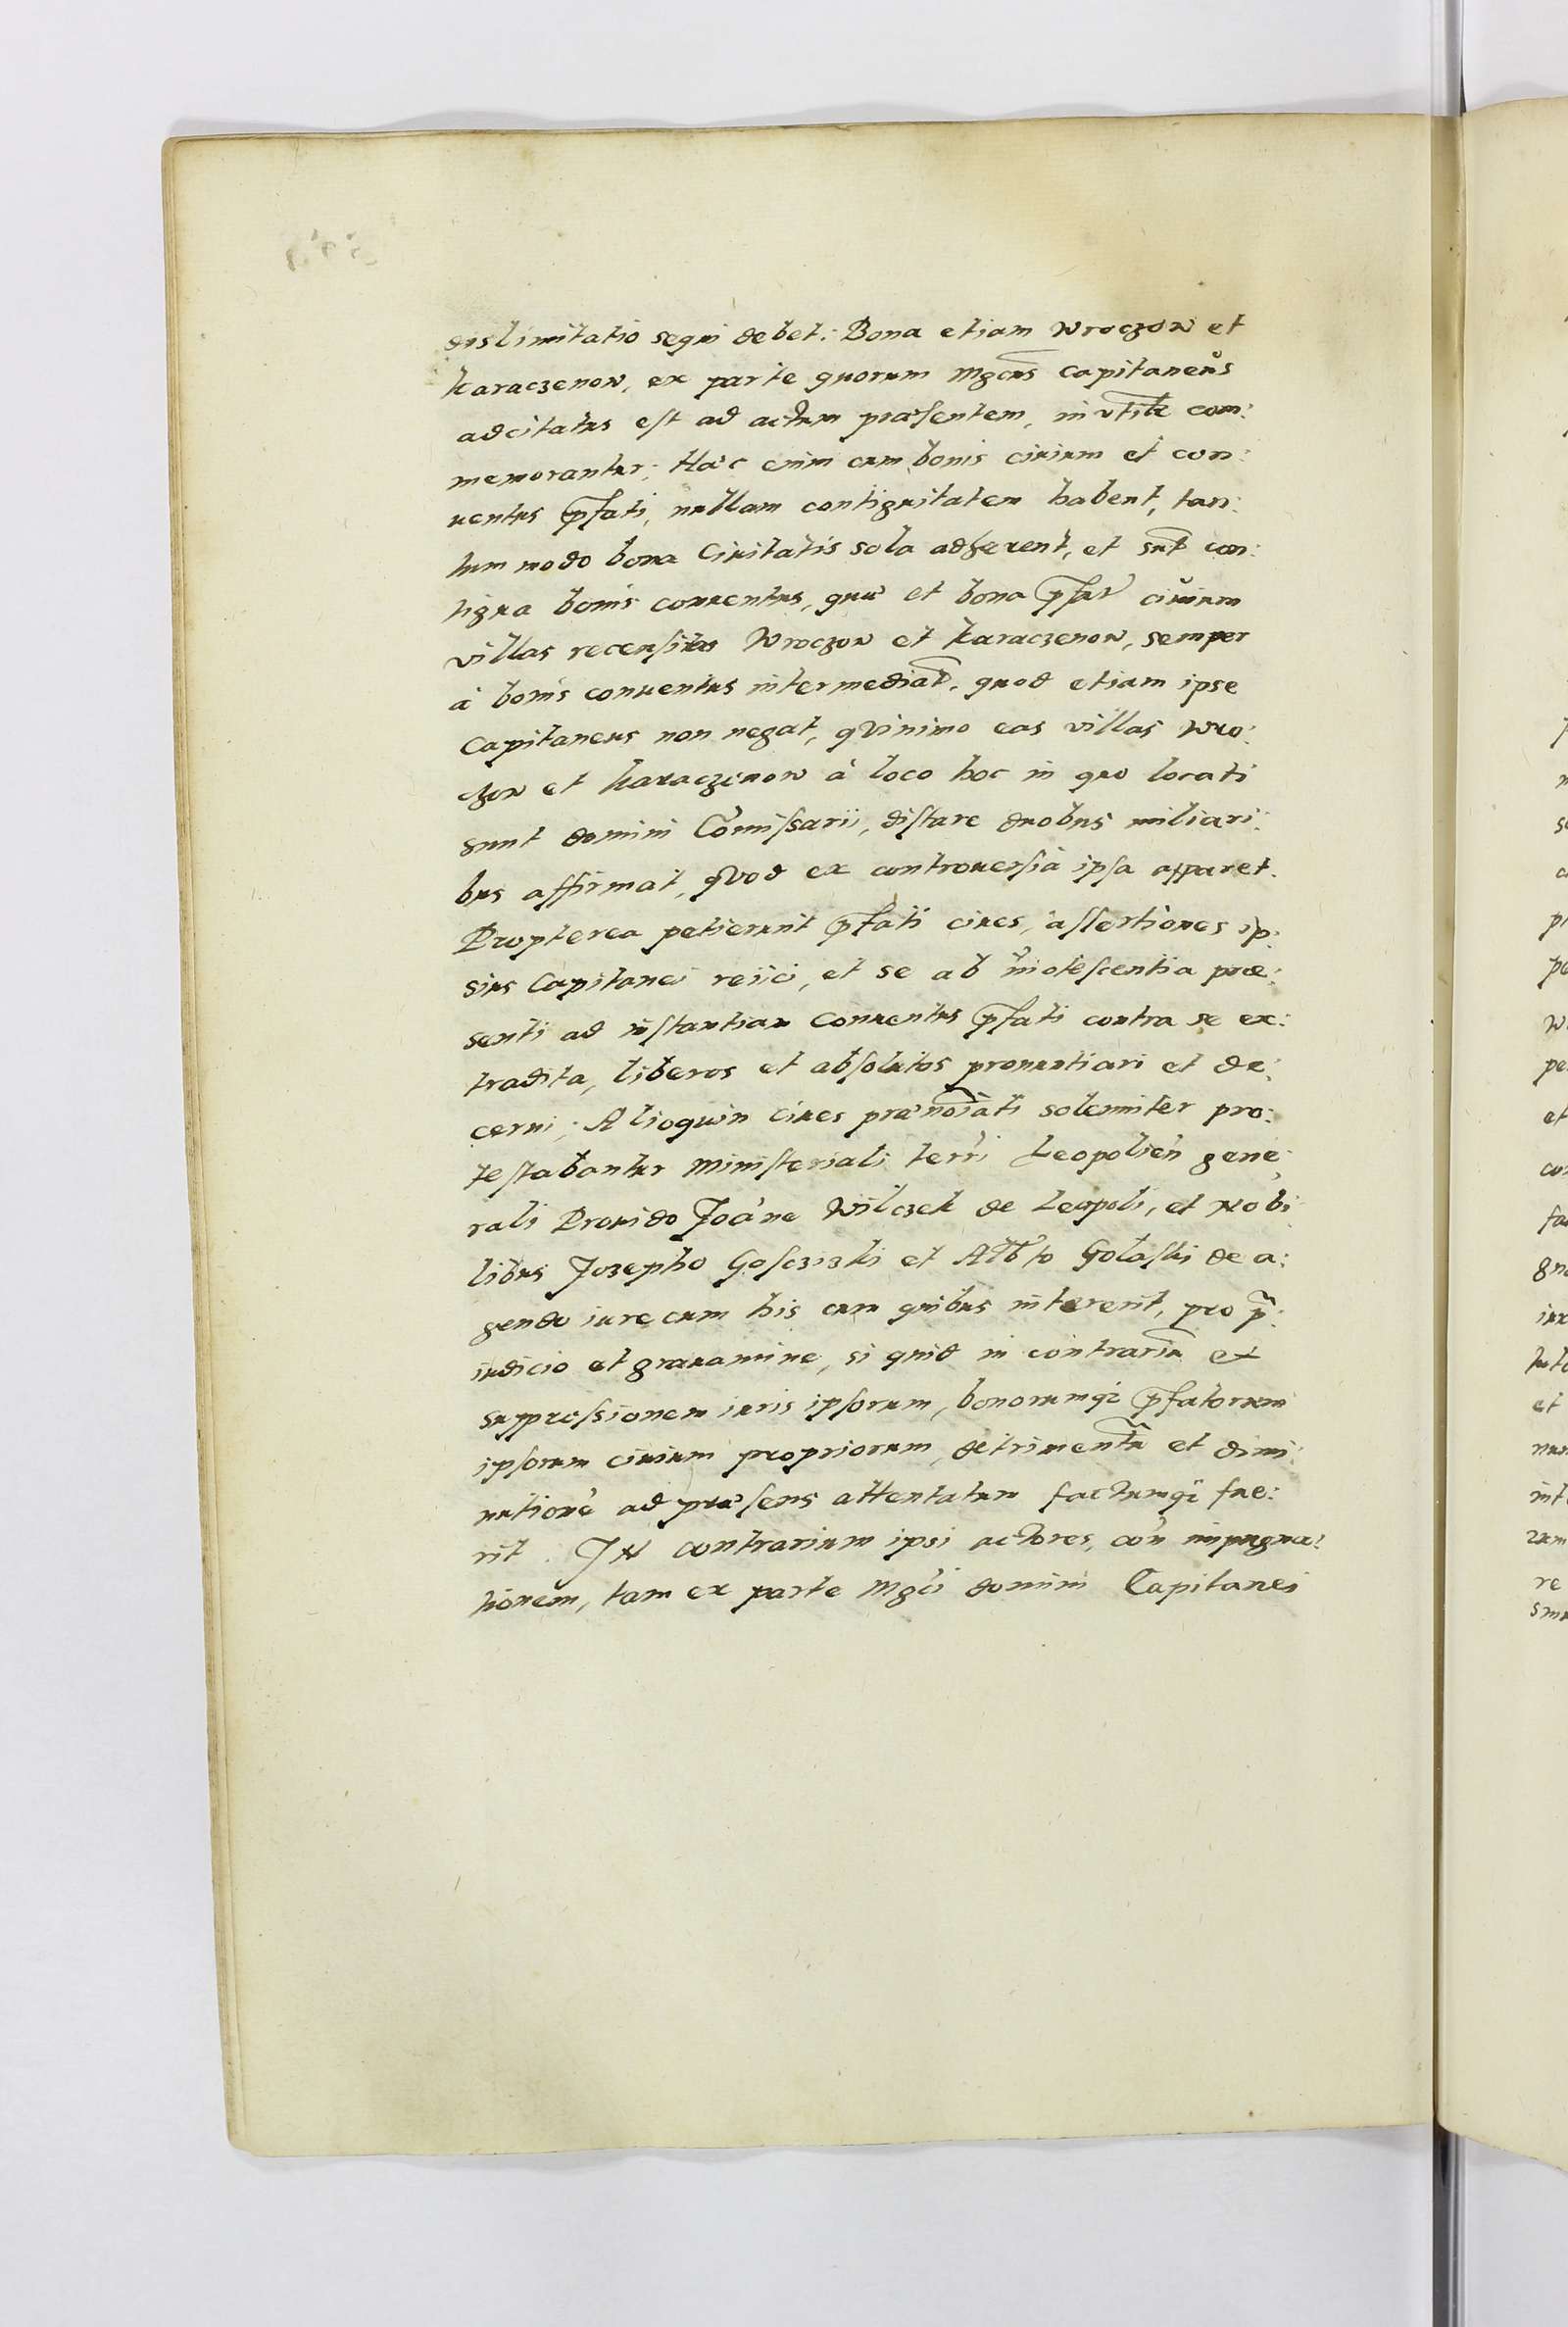 dislimitatio sequi debet: Bona etiam Wroczow et
Karaczenow, ex parte quorum Mgcus Capitaneus
adcitatus est ad actum præsentem, inutilr com:
memorantur; Hæc enim cum bonis ciuium et con:
uentus pfati, nullam contiguitatem habent, tan:
tum modo bona Ciuitatis sola adherent, et sut con:
tigua bonis conuentus, quæ et bona pfat ciuium
villas recensitas Wroczow et Karaczenow, semper
à bonis conuentus intermediat, quod etiam ipse
Capitaneus non negat, qvinimo eas villas Wro:
czow et Karaczenow à loco hoc in quo locati
sunt domini Comissarii, distare duobus miliari:
bus affirmat, qvod ex controuersia ipsa apparet.
Propterea petierunt pfati ciues, assertiones ip:
sius Capitanei reiici, et se ab inotescentia præ:
senti ad instantiam Conuentus pfati contra se ex:
tradita, liberos et absolutos pronuntiari et de:
cerni; Alioquin Ciues prænoiati solemniter pro:
testabantur Ministeriali terri Leopolien gene:
rali Prouido Joane Wilczek de Leopoli, et Nobi:
libus Jozepho Gosczizki et Albto Golaski de a:
gendo iure cum his cum quibus intererit, pro p:
iudicio et grauamine, si quid in contrariu et
suppressionem iuris ipsorum, bonorumq; pfatorum
ipsorum ciuium propriorum, detrimentu et dimi:
nutione ad præsens attentatum factumq; fue:
rit. IN contrarium ipsi actores, con impugna:
tionem, tam ex parte Mgci domini Capitanei